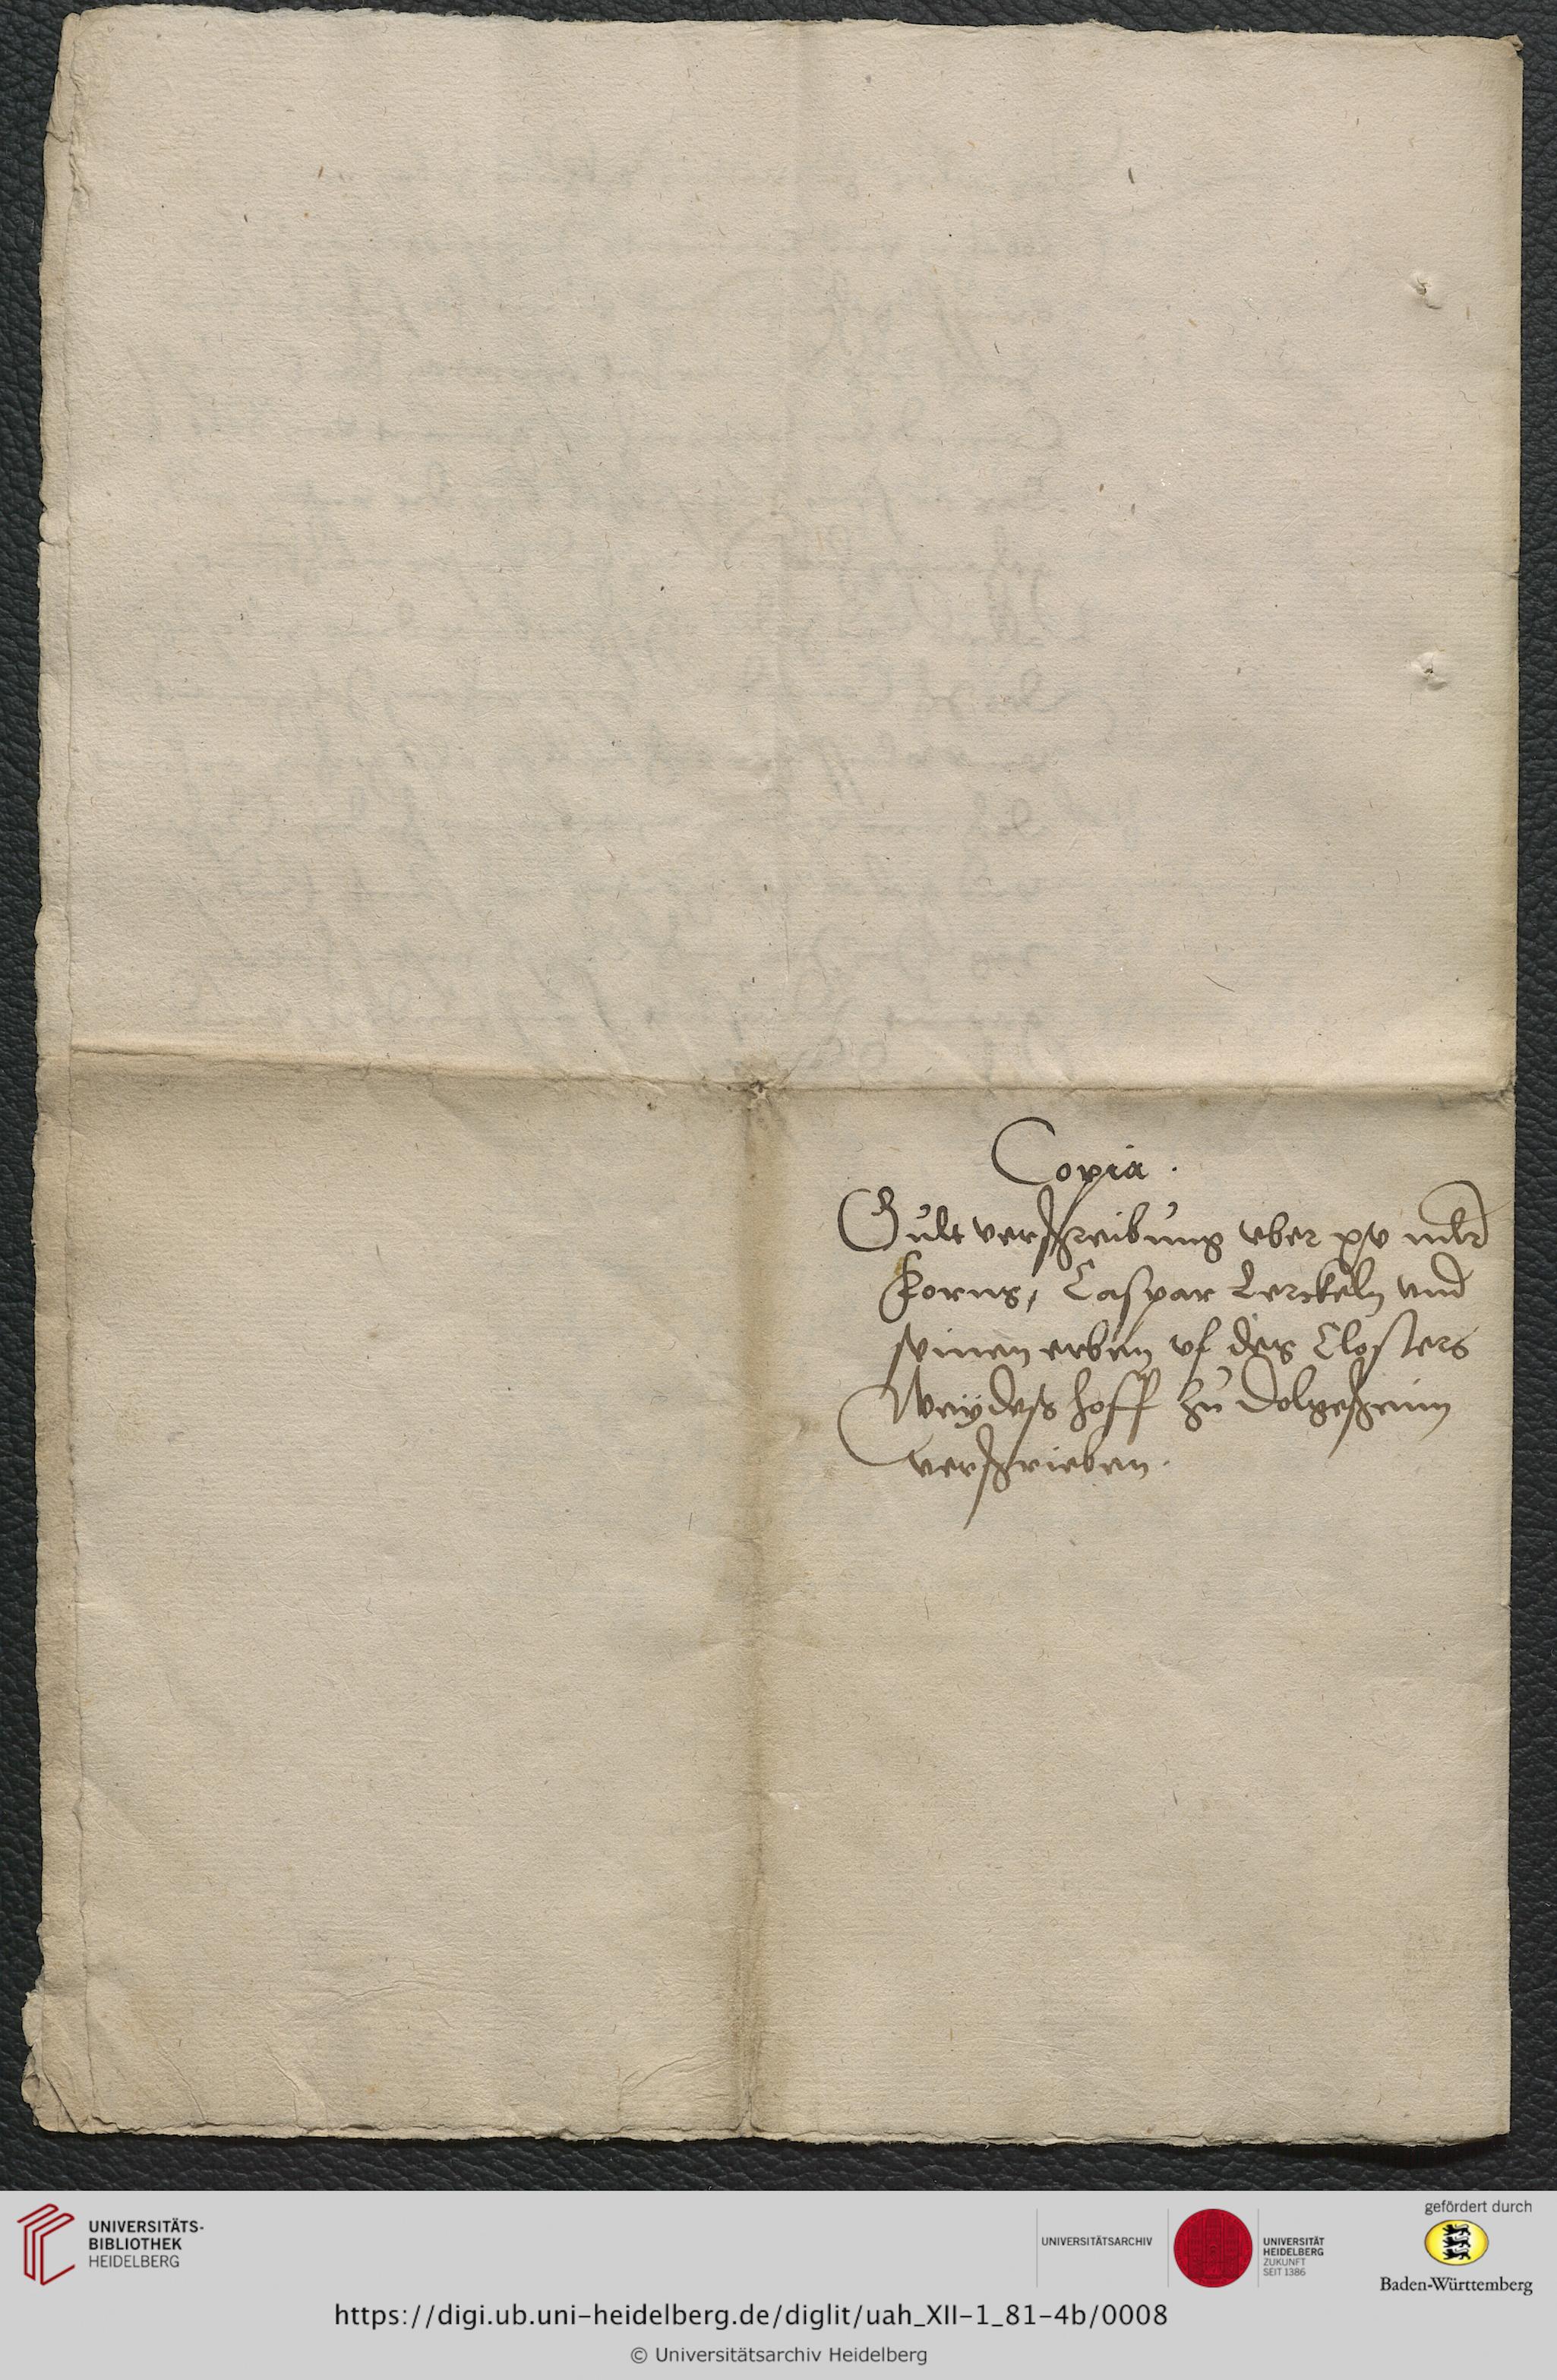 Copia .
Gult verschreibung vber xv mlr
Korns, Caspar Lerckeln vnd
seinen erben vf des Closters
Weydeß hoff zu Dolgeßheim
verschrieben.
UNIVERSITÄTS-
BIBLIOTHEK
HEIDELBERG
UNIVERSITÄTSARCHIV
UNIVERSITÄT
HEIDELBERG
ZUKUNFT
SEIT 1386
gefördert durch
Baden-Württemberg
https://digi.ub.uni-heidelberg.de/diglit/uah_XII-1_81-4b/0008
© Universitätsarchiv Heidelberg